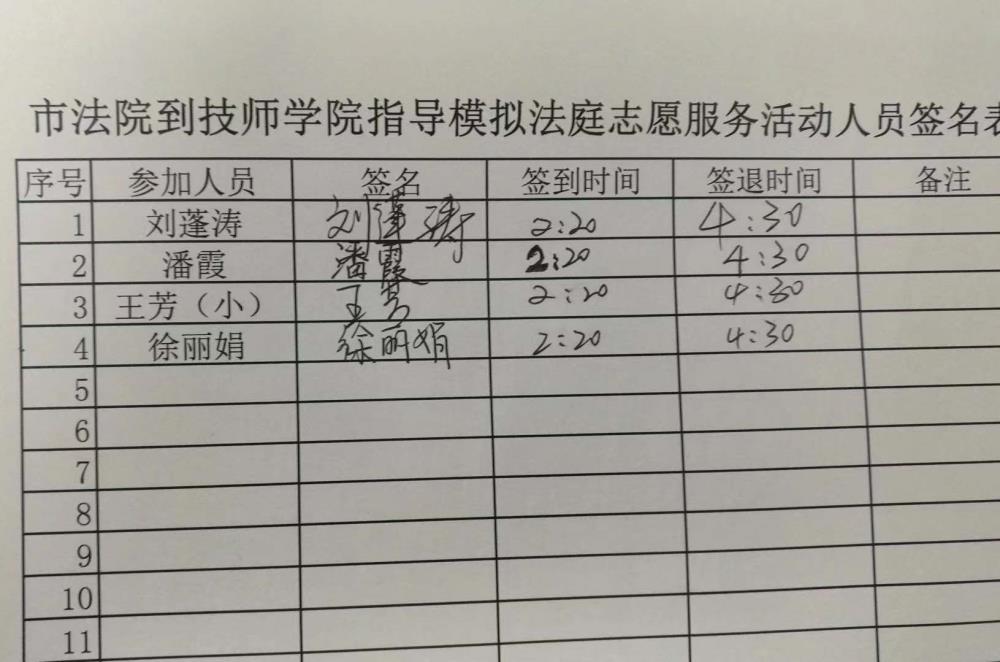 市法院到技师学院指导模拟法庭志愿服务活动人员签名表
序号 参加人员 签名 签到时间 签退时间 备注
1 刘蓬涛 刘蓬涛 2:20 4:30
2 潘霞 潘霞 2:20 4:30
3 王芳（小） 王芳 2:20 4:30
4 徐丽娟 徐丽娟 2:20 4:30
5
6
7
8
9
10
11